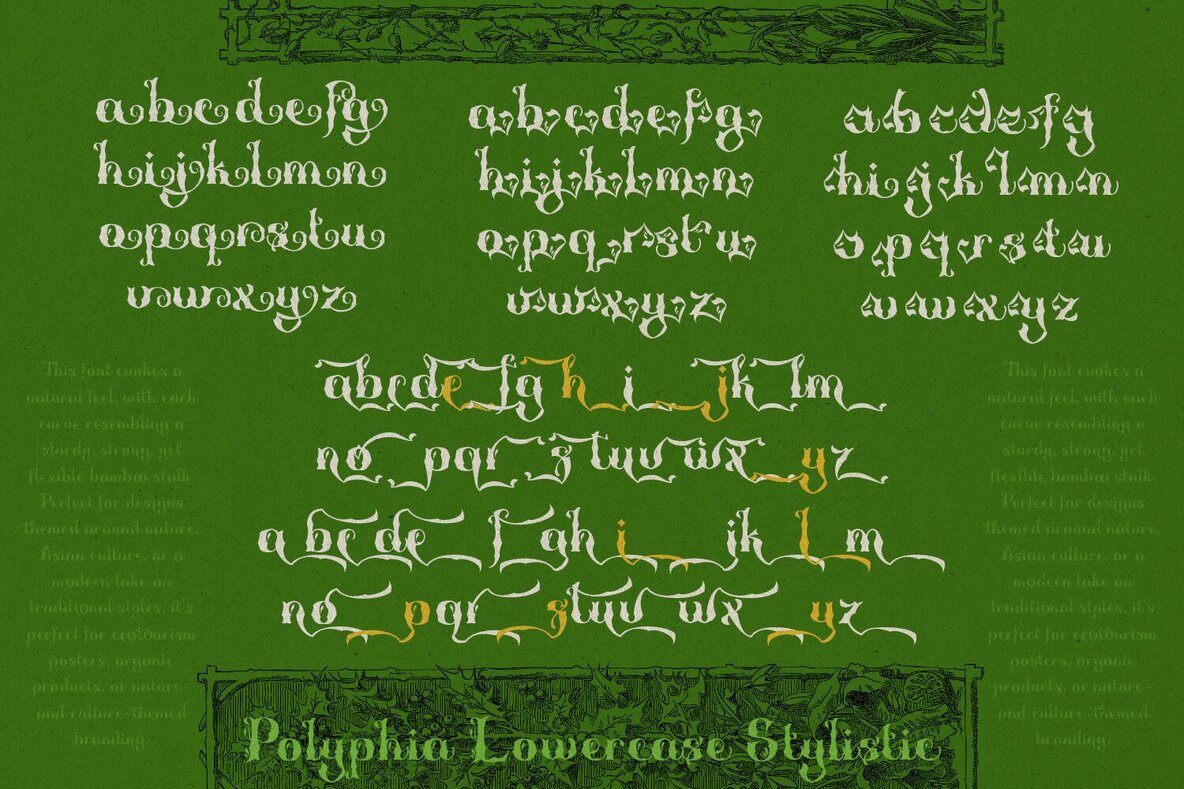 abcdefg
hijklmn
opqrstu
vwxyz
abcdefg
hijklmn
opqrstu
vwxyz
abcdefg
hijklmn
opqrstu
vwxyz
abcdefghijklm
nopqrstuvwxyz
abcdefghijklm
nopqrstuvwxyz
This font evokes a
natural feel, with each
curve resembling a
sturdy, strong, yet
flexible bamboo stalk.
Perfect for designs
themed around nature,
Asian culture, or a
modern take on
traditional styles, it's
perfect for ecotourism
posters, organic
products, or nature-
and culture-themed
branding.
This font evokes a
natural feel, with each
curve resembling a
sturdy, strong, yet
flexible bamboo stalk.
Perfect for designs
themed around nature,
Asian culture, or a
modern take on
traditional styles, it's
perfect for ecotourism
posters, organic
products, or nature-
and culture-themed
branding.
Polyphia Lowercase Stylistic